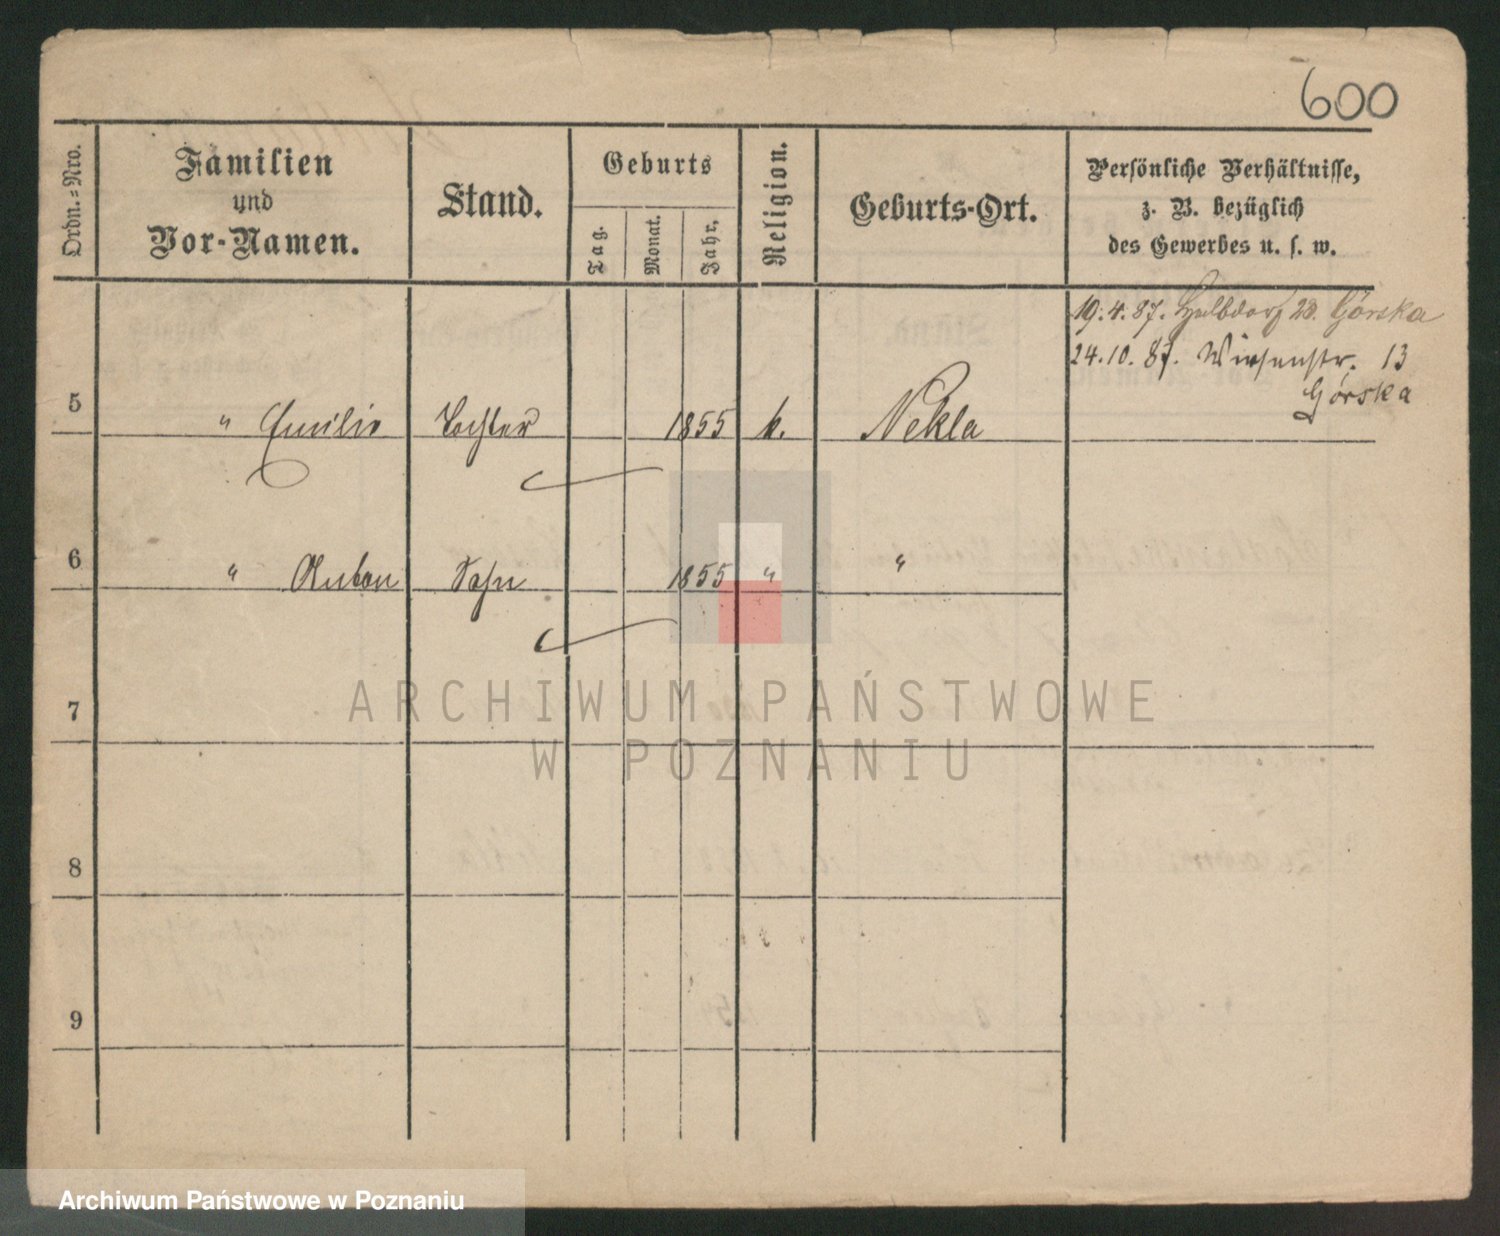 600
Ordn.-Nro.
Familien
und
Vor-Namen.
Stand.
Geburts
Tag.
Monat.
Jahr.
Religion.
Geburts-Ort.
Persönliche Verhältnisse,
z. B. bezüglich
des Gewerbes u. s. w.
19.4.87. Halbdorf 23. Górska
24.10.87. Wiesenstr. 13
Górska
5 " Emilie Tochter 1855 k. Nekla
6 " Anton Sohn 1855 " "
7
8
9
ARCHIWUM PAŃSTWOWE
W POZNANIU
Archiwum Państwowe w Poznaniu